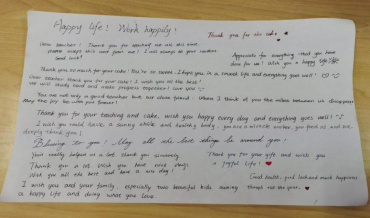 Happy life! Work happily!
Thank you for the cake. ♥
Dear teacher! Thank you for teaching me all this time.
please accept this and feel me! I will always be your student
and luck!
Appreciate for everything that you have
done for us! Wish you a happy life
Thank you so much for your care! You're so sweet. I hope you in a travel life and everything goes well!
Dear teacher thank you for your cake! I wish you all the best!
we will study hard and make progress together! Love you
You are not only a good teacher but our close friend. When I think of you the miles between us disappear
May the joy be with you forever!
Thank you for your teaching and cake. wish you happy every day and everything goes well!
I wish you could have a sunny smile and healthy body. you are a miracle worker, you feed us and we
deeply thank you!
Blessing to you! May all the love things be around you!
Your really helped us a lot. thank you sincerely.
Thank you for your gift and wish you
a joyful life! ♥
Thank you a lot. Wish you have nice days.
Wish you all the best and have a nice day!
Good health, good luck and much happiness
I wish you and your family, especially two beautiful kids
through out the year. ♥
a happy life and doing what you love